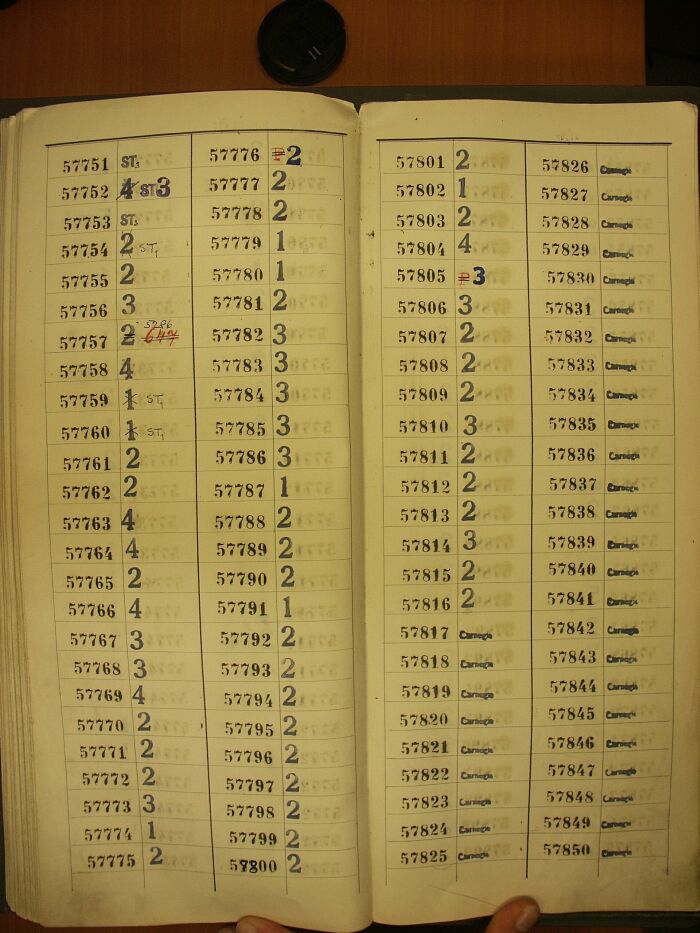 57751 ST3
57752 4 ST3
57753 ST3
57754 2 ST1
57755 2
57756 3
57757 2 5296 647
57758 4
57759 1 ST1
57760 1 ST1
57761 2
57762 2
57763 4
57764 4
57765 2
57766 4
57767 3
57768 3
57769 4
57770 2
57771 2
57772 2
57773 3
57774 1
57775 2
57776 P 2
57777 2
57778 2
57779 1
57780 1
57781 2
57782 3
57783 3
57784 3
57785 3
57786 3
57787 1
57788 2
57789 2
57790 2
57791 1
57792 2
57793 2
57794 2
57795 2
57796 2
57797 2
57798 2
57799 2
57800 2
57801 2
57802 1
57803 2
57804 4
57805 P 3
57806 3
57807 2
57808 2
57809 2
57810 3
57811 2
57812 2
57813 2
57814 3
57815 2
57816 2
57817 Carnegie
57818 Carnegie
57819 Carnegie
57820 Carnegie
57821 Carnegie
57822 Carnegie
57823 Carnegie
57824 Carnegie
57825 Carnegie
57826 Carnegie
57827 Carnegie
57828 Carnegie
57829 Carnegie
57830 Carnegie
57831 Carnegie
57832 Carnegie
57833 Carnegie
57834 Carnegie
57835 Carnegie
57836 Carnegie
57837 Carnegie
57838 Carnegie
57839 Carnegie
57840 Carnegie
57841 Carnegie
57842 Carnegie
57843 Carnegie
57844 Carnegie
57845 Carnegie
57846 Carnegie
57847 Carnegie
57848 Carnegie
57849 Carnegie
57850 Carnegie